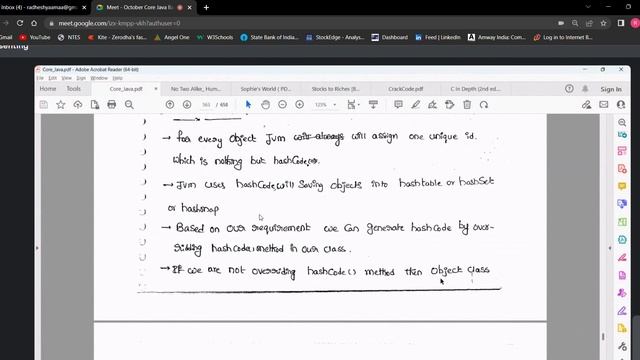 Inbox (4) - radheshyaamaa@gm
Meet - October Core Java Ba
meet.google.com/izx-kmpp-vkh?authuser=0
Kite - Zerodha's fast...
NTES
Angel One
W3Schools
State Bank of India...
StockEdge - Analys...
Downloads
Amfleet
Feed | LinkedIn
Amway India: Com...
Log in to Internet B...
enting
Core_Java.pdf - Adobe Acrobat Reader (64-bit)
File Edit View Sign Window Help
Home Tools
Core_Java.pdf
No Two Alike_ Hum...
Sophie's World ( PD...
Stocks to Riches [B...
CrackCode.pdf
C in Depth (2nd ed...
Sign In
/ 658
125%
→ for every object Jvm will always will assign one unique id.
which is nothing but hashCode.
→ Jvm uses hashCode will Saving objects into hashtable or hashSet
or hashmap
→ Based on our requirement we can generate hashCode by over-
riding hashCode() method in our class.
→ If we are not overriding hashCode() method then Object class